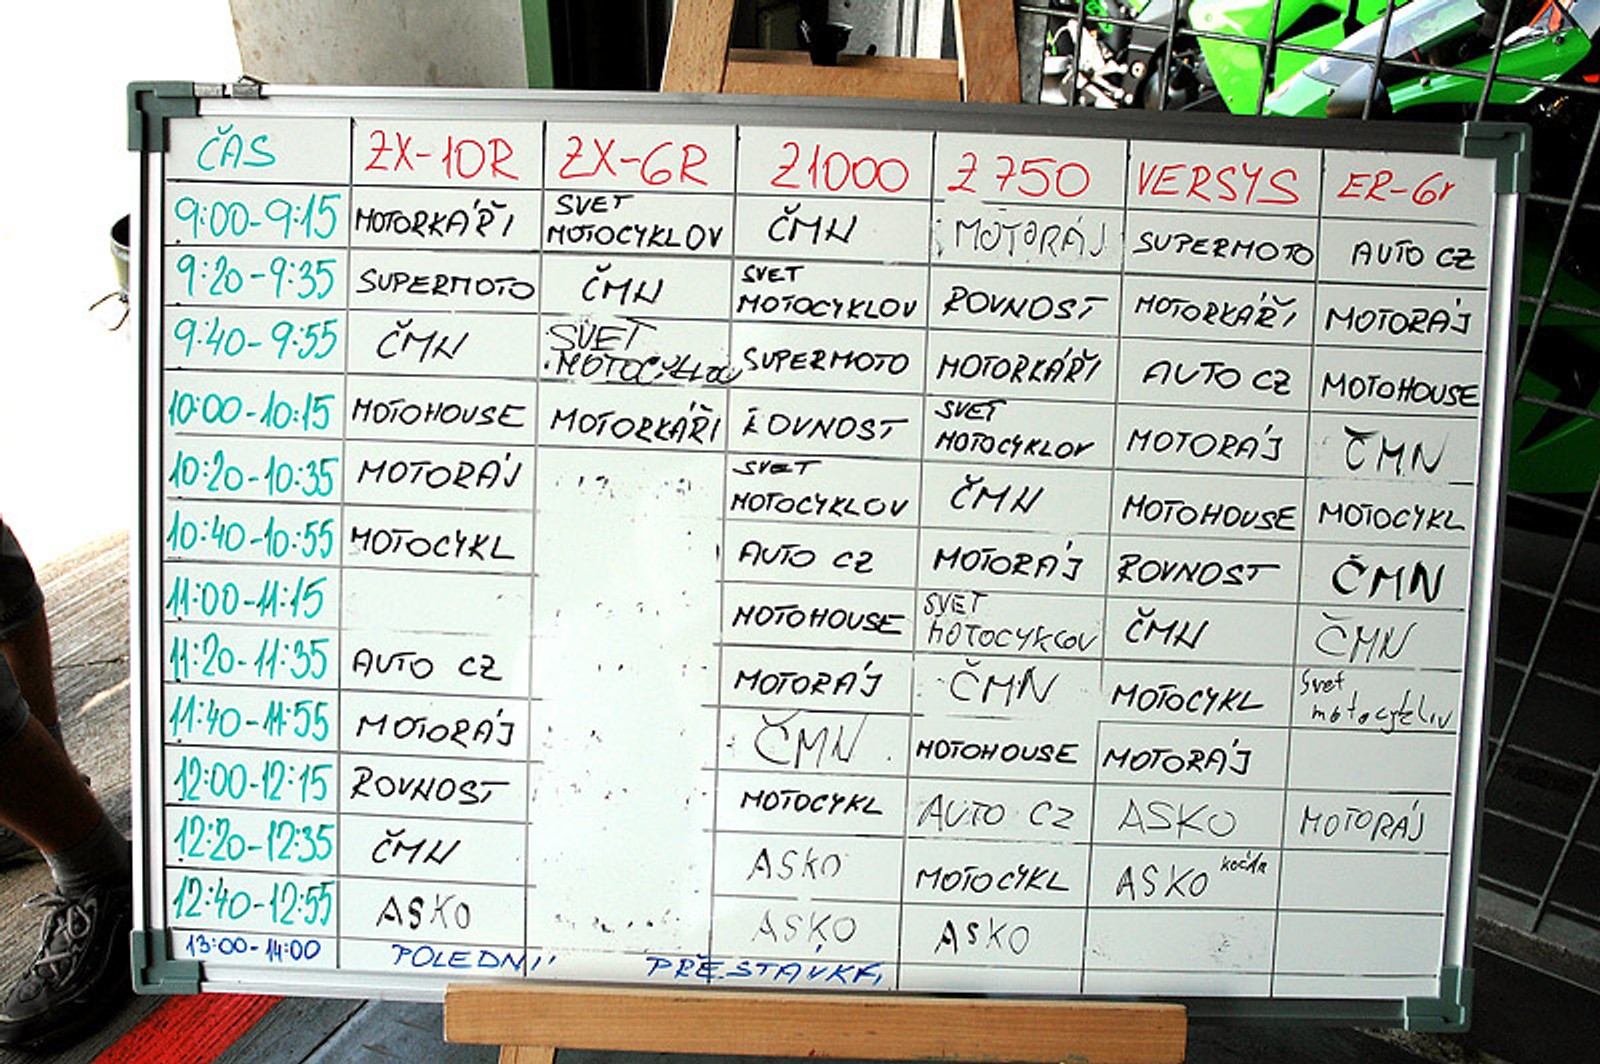 ČAS ZX-10R ZX-6R Z1000 Z750 VERSYS ER-6n
9:00-9:15 MOTORKÁŘI SVET MOTOCYKLOV ČMN MOTORÁJ SUPERMOTO AUTO CZ
9:20-9:35 SUPERMOTO ČMN SVET MOTOCYKLOV ROVNOST MOTORKÁŘI MOTORÁJ
9:40-9:55 ČMN SVET MOTOCYKLOV SUPERMOTO MOTORKÁŘI AUTO CZ MOTOHOUSE
10:00-10:15 MOTOHOUSE MOTORKÁŘI ROVNOST SVET MOTOCYKLOV MOTORÁJ ČMN
10:20-10:35 MOTORÁJ SVET MOTOCYKLOV ČMN MOTOHOUSE MOTOCYKL
10:40-10:55 MOTOCYKL AUTO CZ MOTORÁJ ROVNOST ČMN
11:00-11:15 MOTOHOUSE SVET MOTOCYKLOV ČMN ČMN
11:20-11:35 AUTO CZ MOTORÁJ ČMN MOTOCYKL Svet motocyklov
11:40-11:55 MOTORÁJ ČMN MOTOHOUSE MOTORÁJ
12:00-12:15 ROVNOST MOTOCYKL AUTO CZ ASKO MOTORÁJ
12:20-12:35 ČMN ASKO MOTOCYKL ASKO
12:40-12:55 ASKO ASKO ASKO
13:00-14:00 POLEDNÍ PŘESTÁVKA